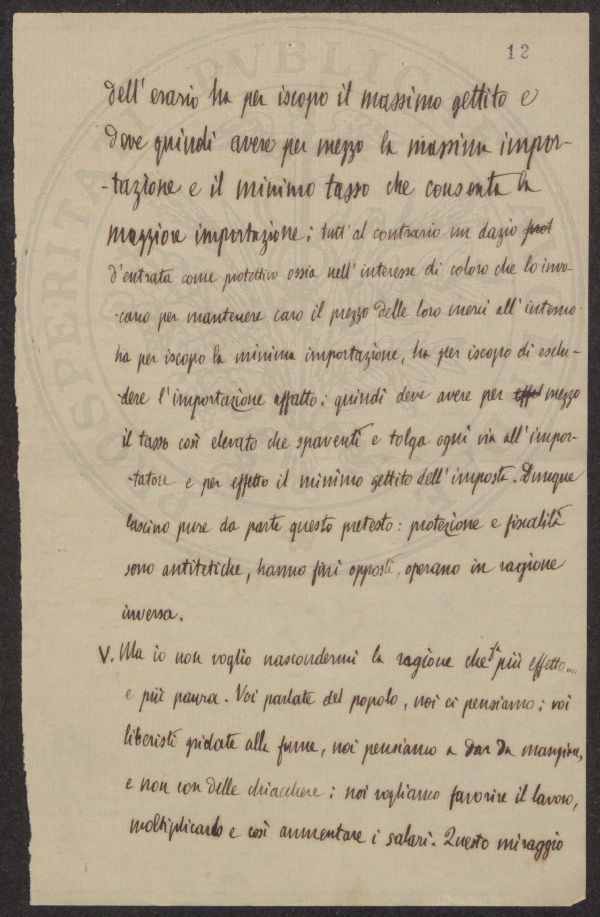 12
dell' erario ha per iscopo il massimo gettito e
deve quindi avere per mezzo la massima impor-
-tazione e il minimo tasso che consenta la
maggiore importazione; tutt' al contrario un dazio prot
d'entrata come protettivo ossia nell' interesse di coloro che lo invo-
-cano per mantenere caro il prezzo delle loro merci all' interno
ha per iscopo la minima importazione, ha per iscopo di esclu-
-dere l' importazione affatto: quindi deve avere per effet mezzo
il tasso così elevato che spaventi e tolga ogni via all' impor-
-tatore e per effetto il minimo gettito dell' imposta. Dunque
lascino pure da parte questo pretesto: protezione e fiscalità
sono antitetiche, hanno fini opposti, operano in ragione
inversa.
V. Ma io non voglio nascondermi la ragione che fa più effetto....
e più paura. Voi parlate del popolo, noi ci pensiamo; voi
liberisti gridate alla fame, noi pensiamo a dar da mangiare,
e non con delle chiacchere; noi vogliamo favorire il lavoro,
moltiplicarlo e così aumentare i salari. Questo miraggio
PROSPERITATI PUBLIC